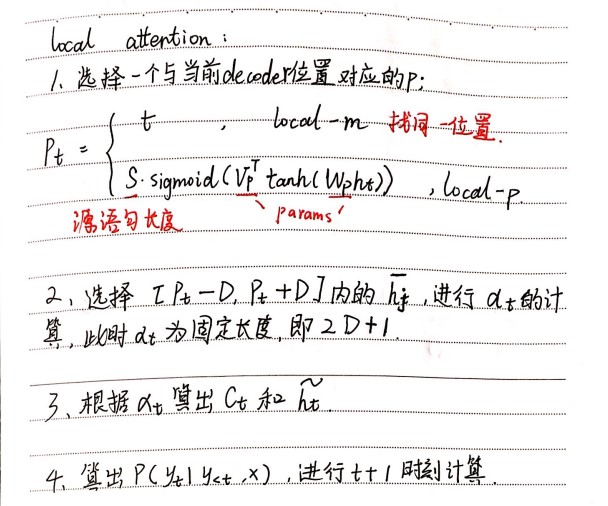 local attention :
1、选择一个与当前decoder位置对应的P;
Pt = { t , local-m 找同一位置.
S·sigmoid(Vp^T tanh(Wpht)) , local-p.
源语句长度 params
2、选择 [Pt-D, Pt+D]内的 h̄j ,进行 αt的计
算,此时 αt 为固定长度,即 2D+1.
3、根据αt 算出 Ct 和 h̃t.
4、算出 P(yt|y<t,x) ,进行 t+1 时刻计算.